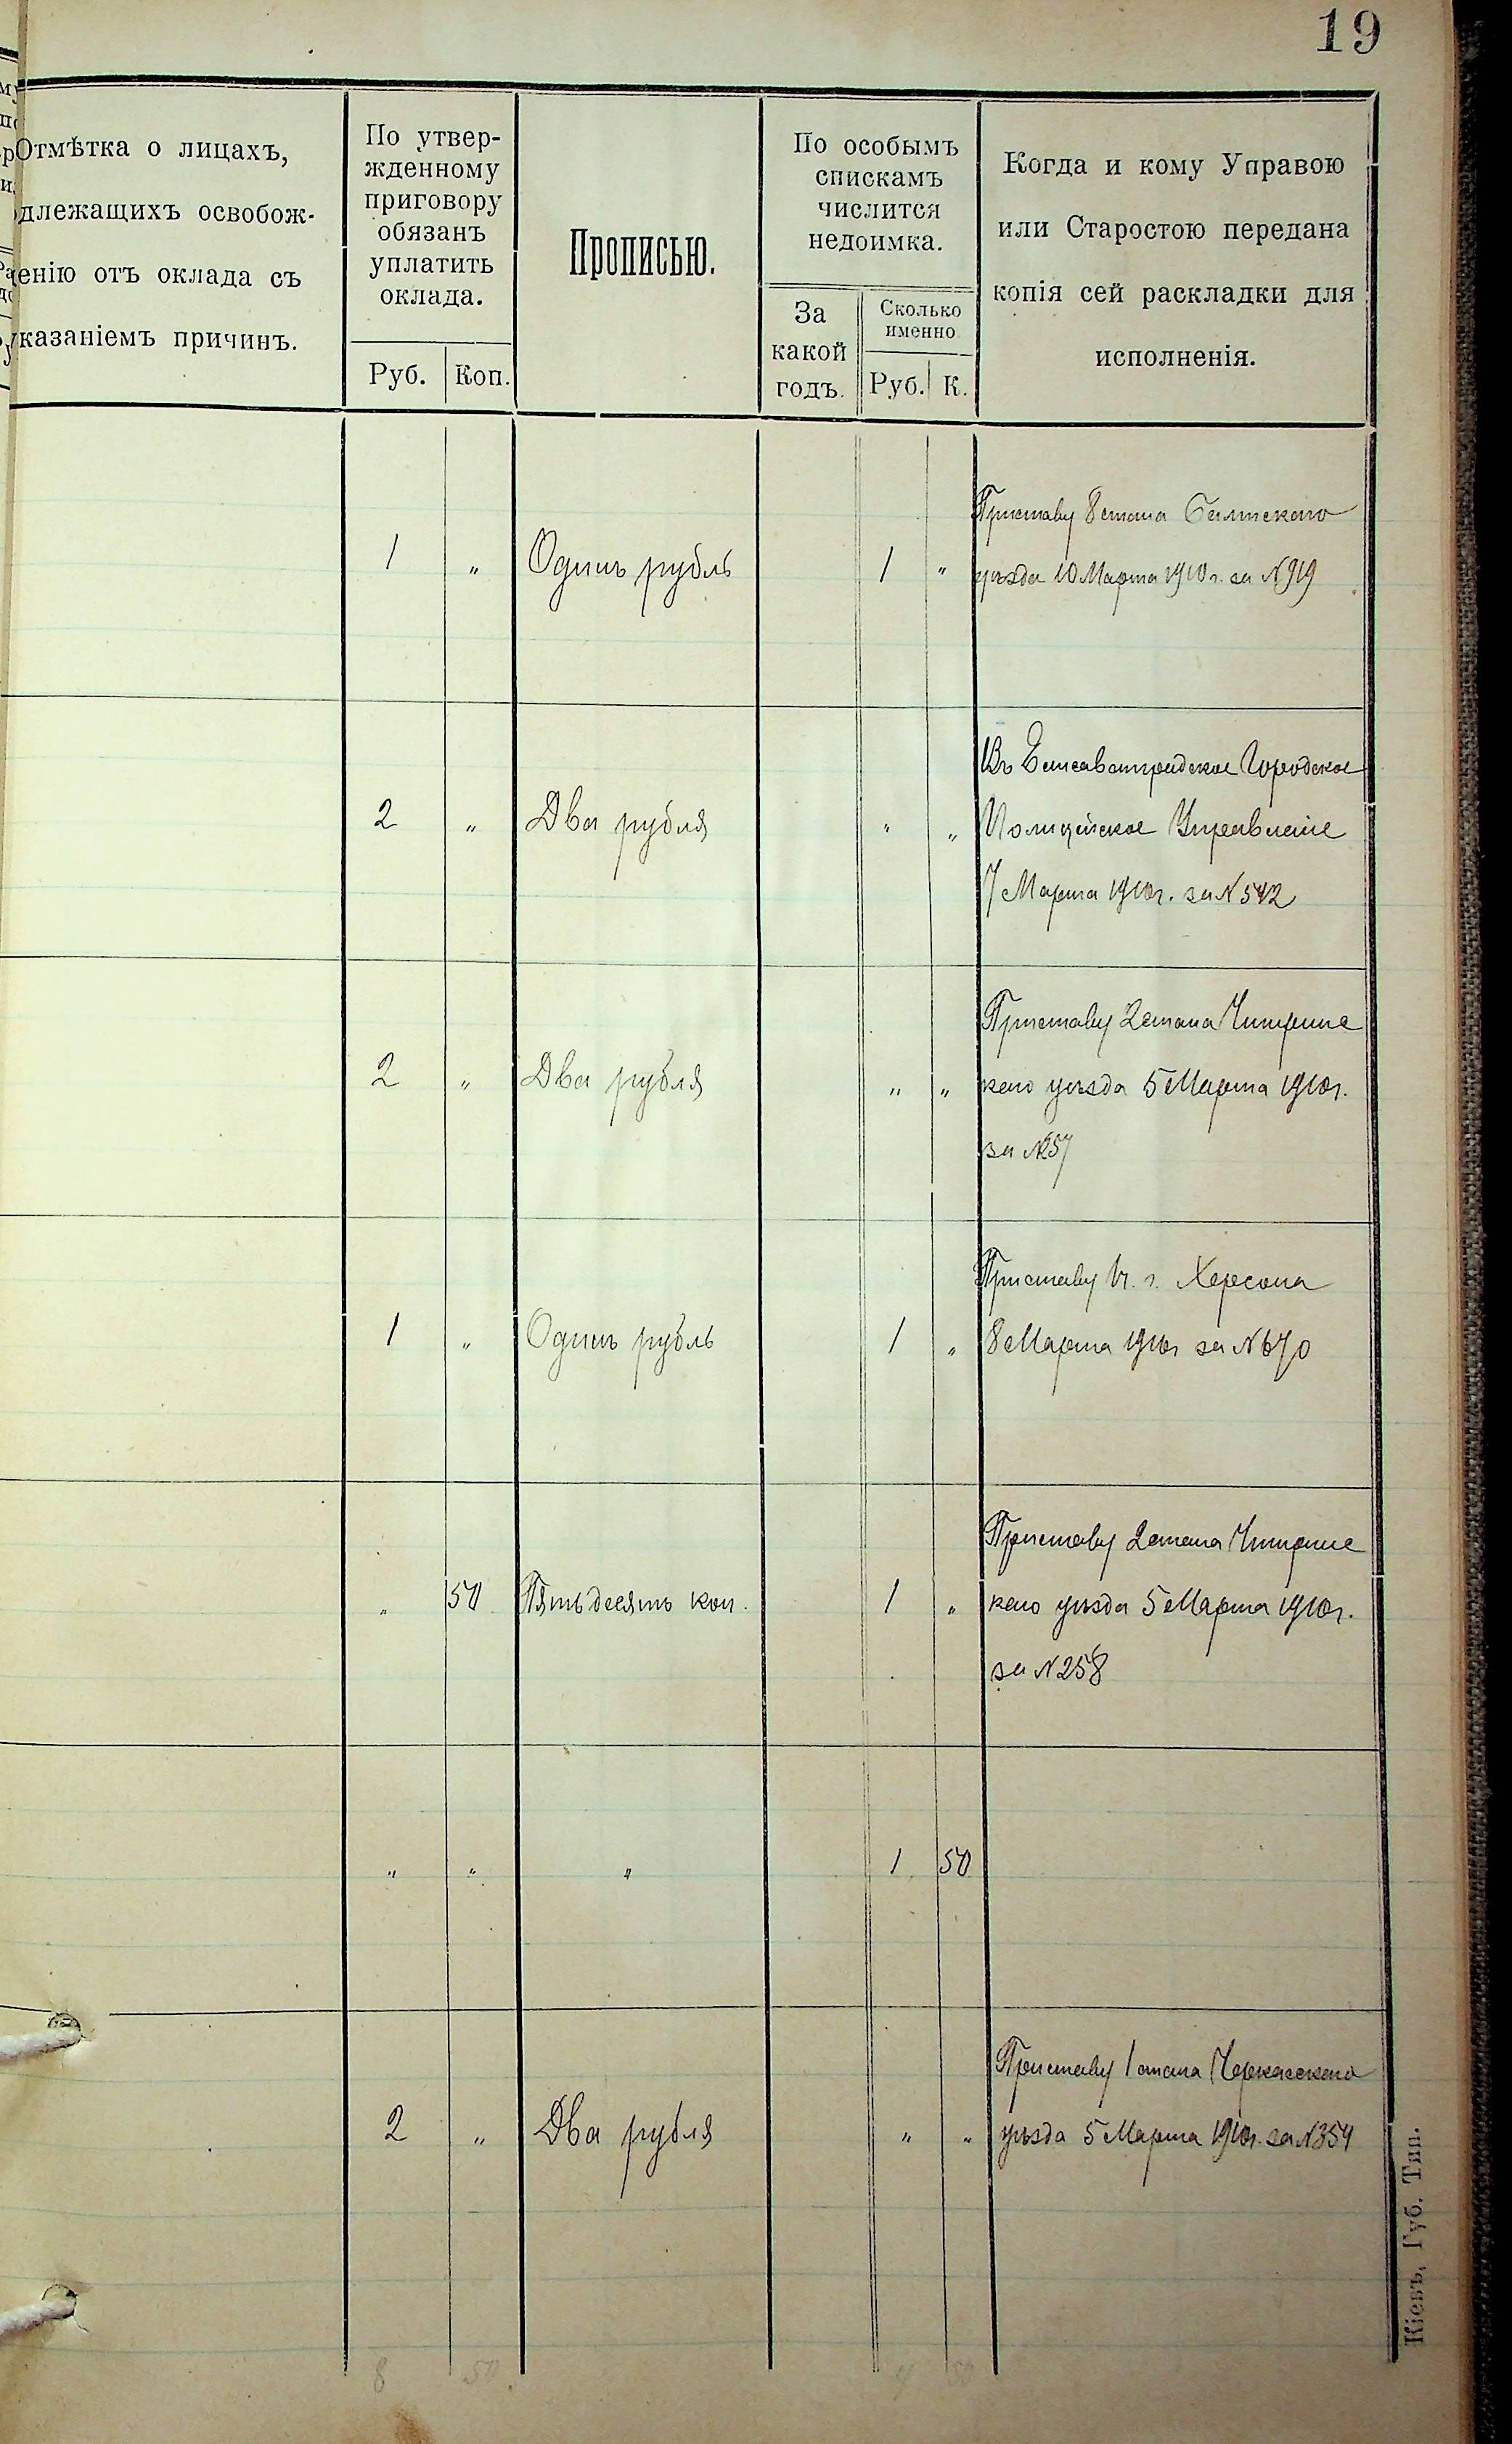 19
Отмѣтка о лицахъ,
длежащихъ освобож-
енію отъ оклада съ
указаніемъ причинъ.
По утвер-
жденному
приговору
обязанъ
уплатить
оклада.
Руб. Коп.
Прописью.
По особымъ
спискамъ
числится
недоимка.
За
какой
годъ.
Сколько
именно
Руб. К.
Когда и кому Управою
или Старостою передана
копія сей раскладки для
исполненія.
Приставу 8 стана Балтскаго
1 „ Одинъ рубль 1 „ уѣзда 10 Марта 1910 г. за N 919
Въ Елисаветградское Городское
2 „ Два рубля „ „ Полицейское Управленіе
7 Марта 1910 г. за N 542
Приставу 2 стана Чигиринс
2 „ Два рубля „ „ каго уѣзда 5 Марта 1910 г.
за N 257
Приставу г. Херсона
1 „ Одинъ рубль 1 „ 8 Марта 1910 г за N 670
Приставу 2 стана Чигиринс
„ 50 Пятьдесятъ коп. 1 „ каго уѣзда 5 Марта 1910 г.
за N 258
„ „ „ 1 50
Приставу 1 стана Черкасскаго
2 „ Два рубля „ „ уѣзда 5 Марта 1910 г. за N 354
8 50 4 50
Кіевъ, Губ. Тип.